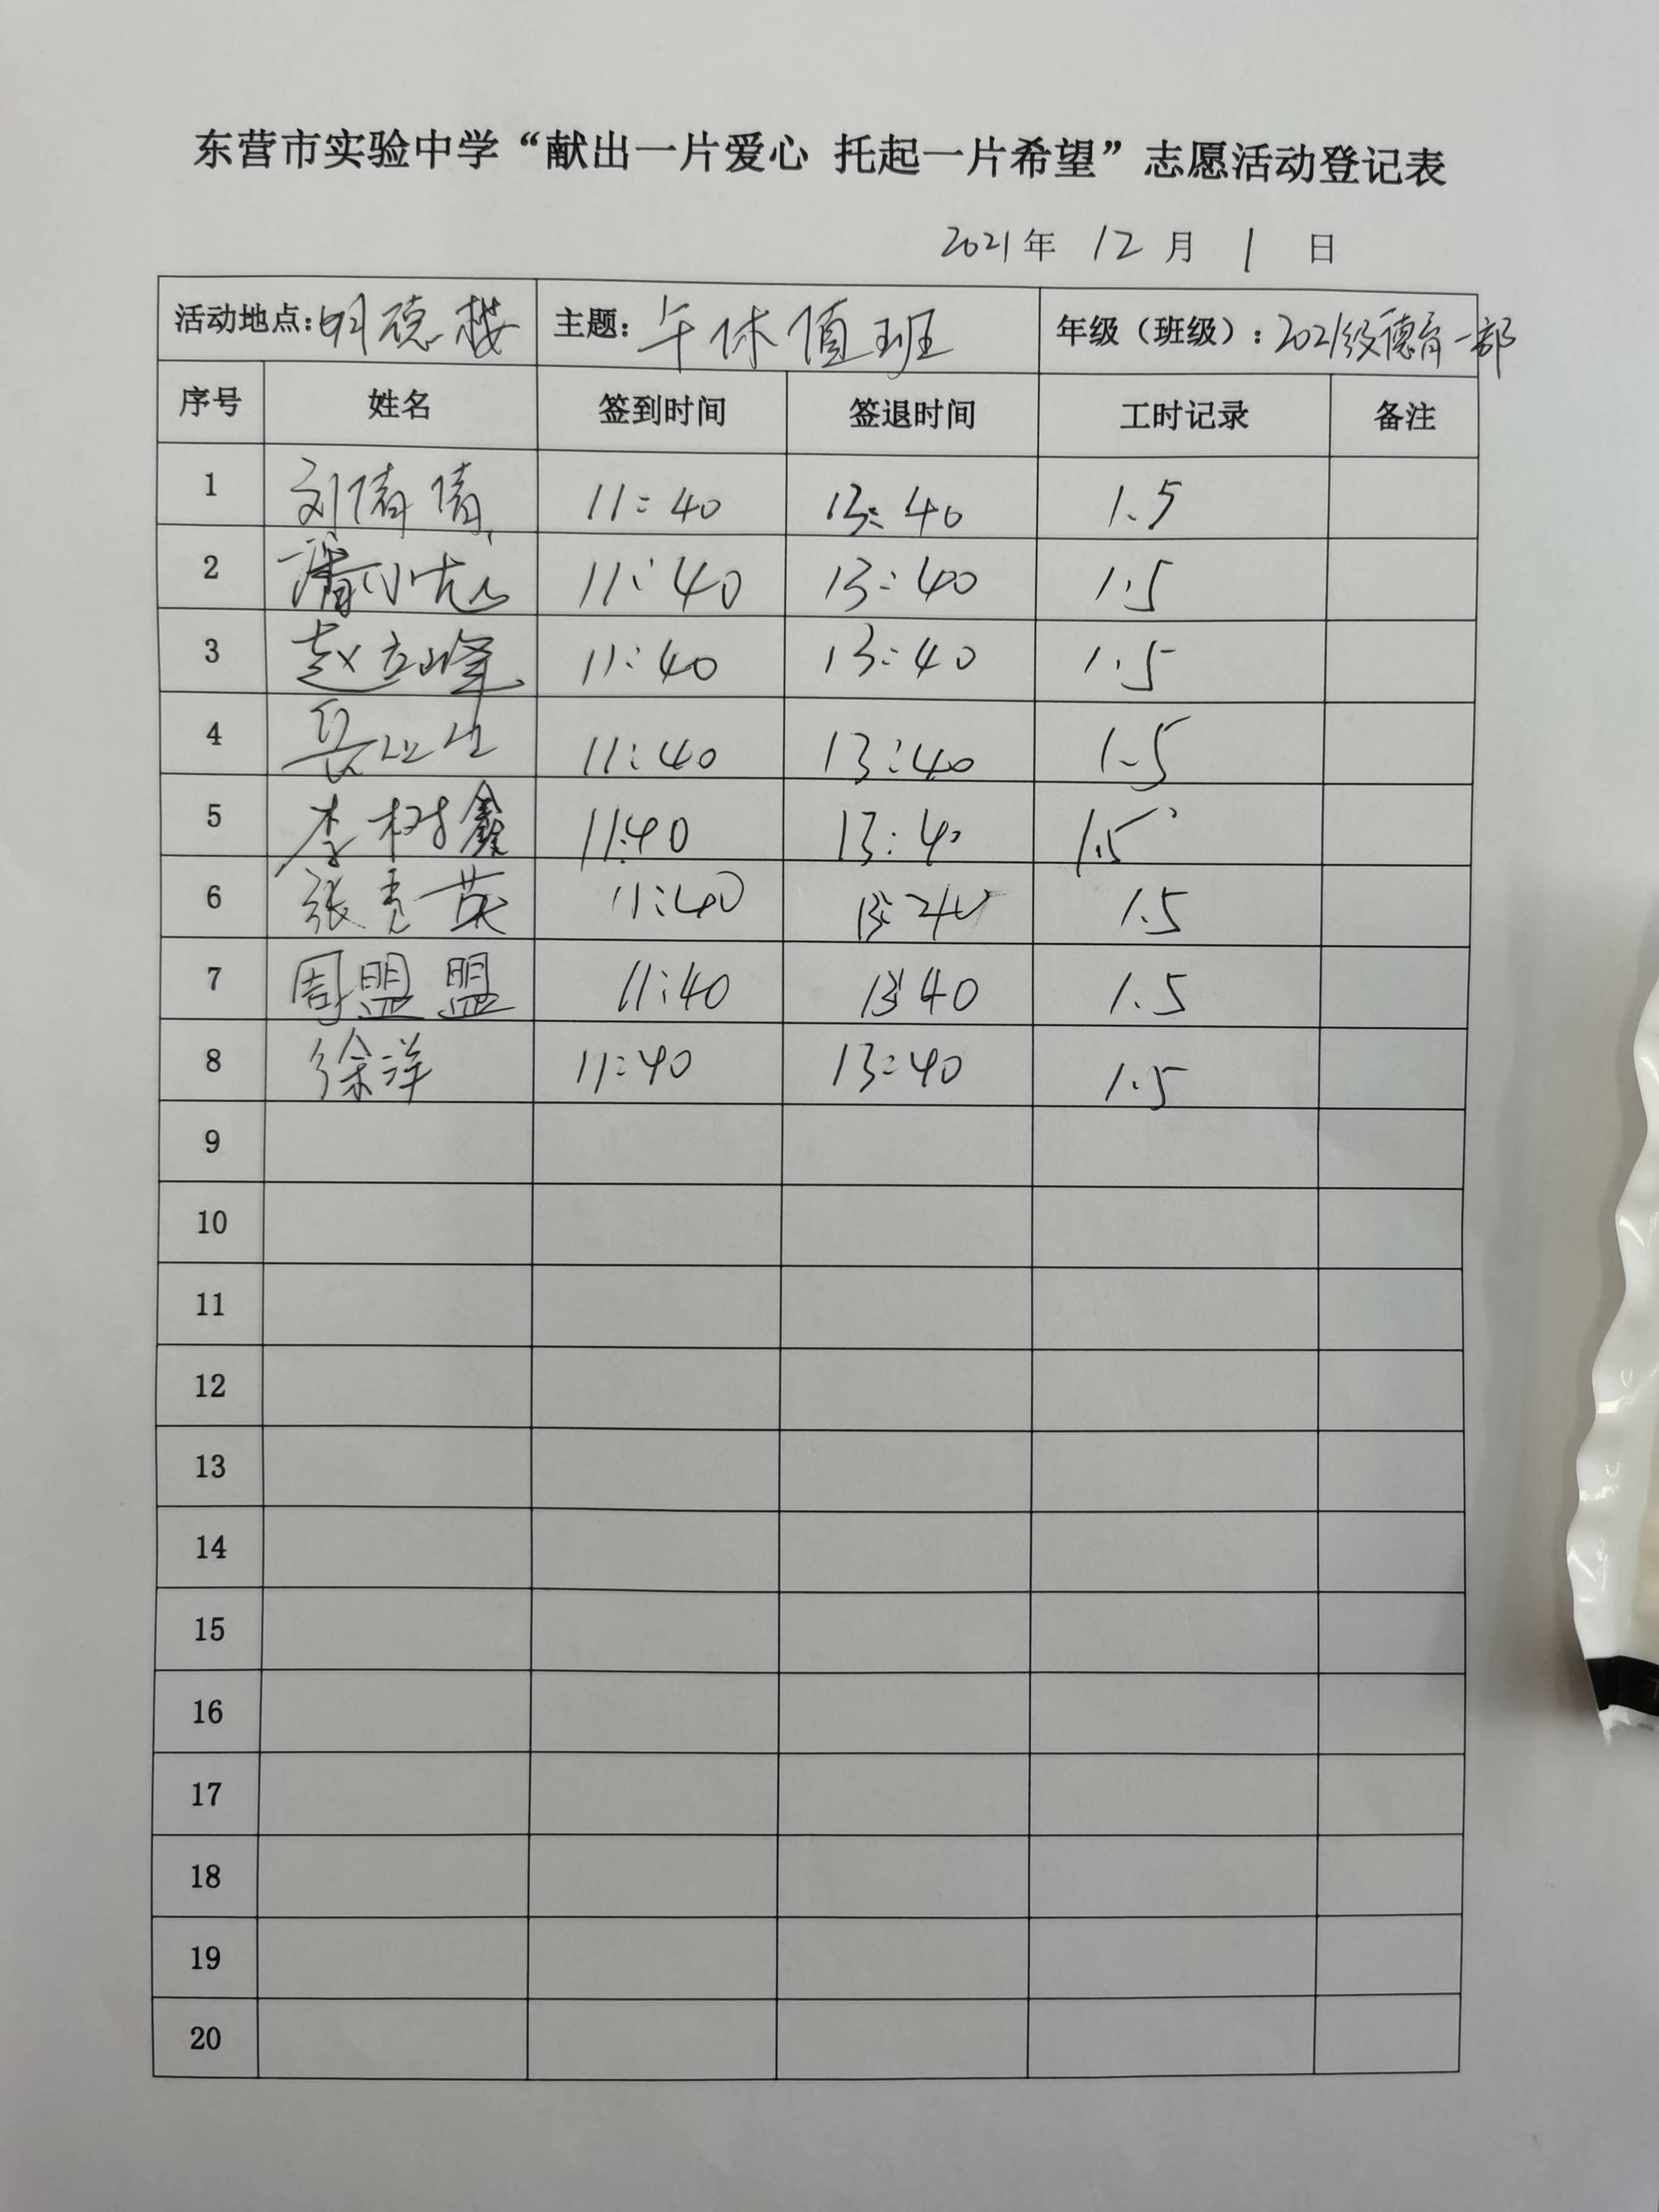 东营市实验中学“献出一片爱心 托起一片希望”志愿活动登记表
2021年 12 月 1 日
活动地点:明德楼 主题:午休值班 年级（班级）:2021级德育一部
序号 姓名 签到时间 签退时间 工时记录 备注
1 刘倩倩 11:40 13:40 1.5
2 11:40 13:40 1.5
3 赵立峰 11:40 13:40 1.5
4 11:40 13:40 1.5
5 李树鑫 11:40 13:40 1.5
6 张秀英 11:40 1.5
7 周盟盟 11:40 13:40 1.5
8 徐洋 11:40 13:40 1.5
9
10
11
12
13
14
15
16
17
18
19
20